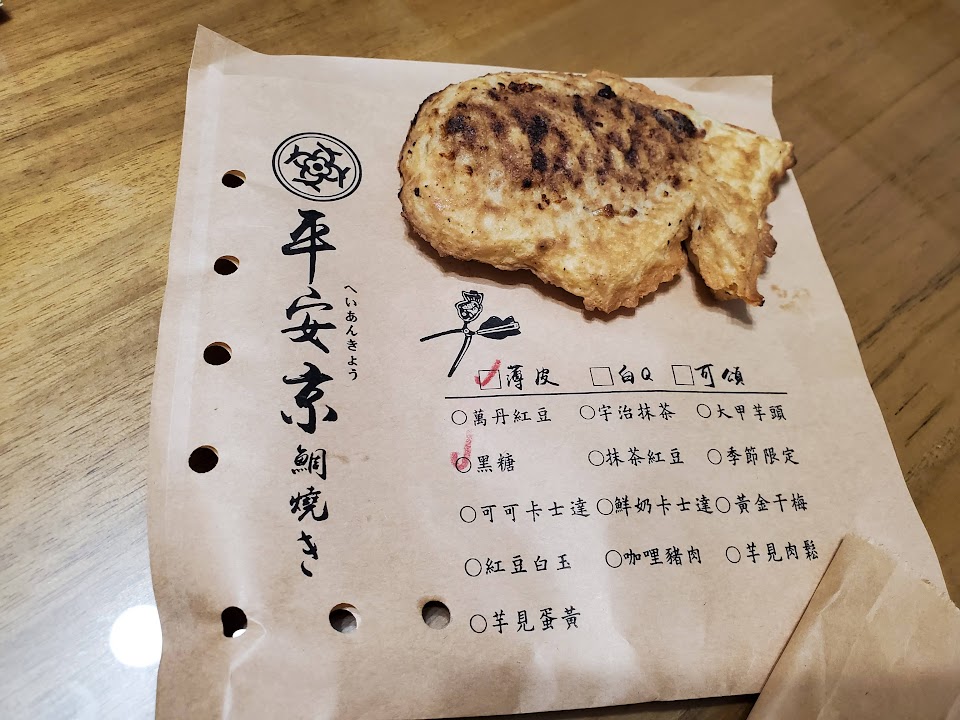 平安京
へいあんきょう
鯛燒き
薄皮 白Q 可頌
萬丹紅豆 宇治抹茶 大甲芋頭
黑糖 抹茶紅豆 季節限定
可可卡士達 鮮奶卡士達 黃金干梅
紅豆白玉 咖哩豬肉 芋見肉鬆
芋見蛋黃